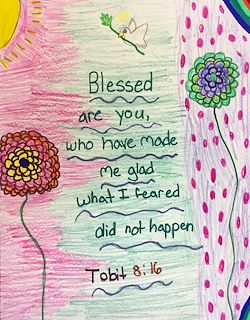 Blessed
are you,
who have made
me glad
what I feared
did not happen
Tobit 8:16